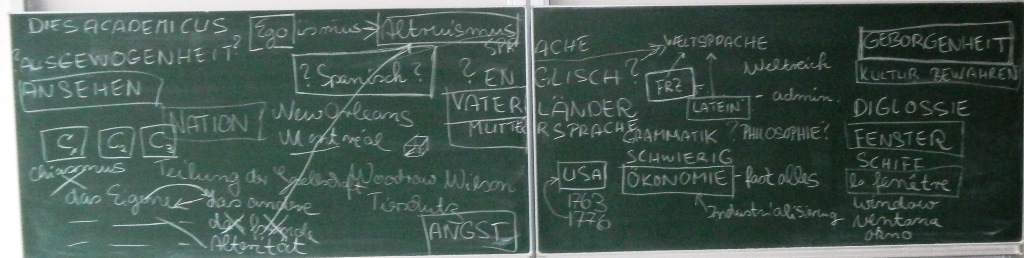 DIES ACADEMICUS
?AUSGEWOGENHEIT?
ANSEHEN
Egoismus → Altruismus
? Spanisch ?
NATION
New Orleans
Montréal
C1 C2 C3
Chiasmus
das Eigene
das andere
Alterität
Teilung der Gesellschaft
Woodrow Wilson
ANGST
SPRACHE
? ENGLISCH ?
VATERLÄNDER
MUTTERSPRACHE
WELTSPRACHE
Weltreich
FRZ
LATEIN - admin.
GRAMMATIK
? PHILOSOPHIE ?
SCHWIERIG
USA
ÖKONOMIE - fast alles
1763
1776
Industrialisierung
GEBORGENHEIT
KULTUR BEWAHREN
DIGLOSSIE
FENSTER
SCHIFF
la fenêtre
window
ventana
okno